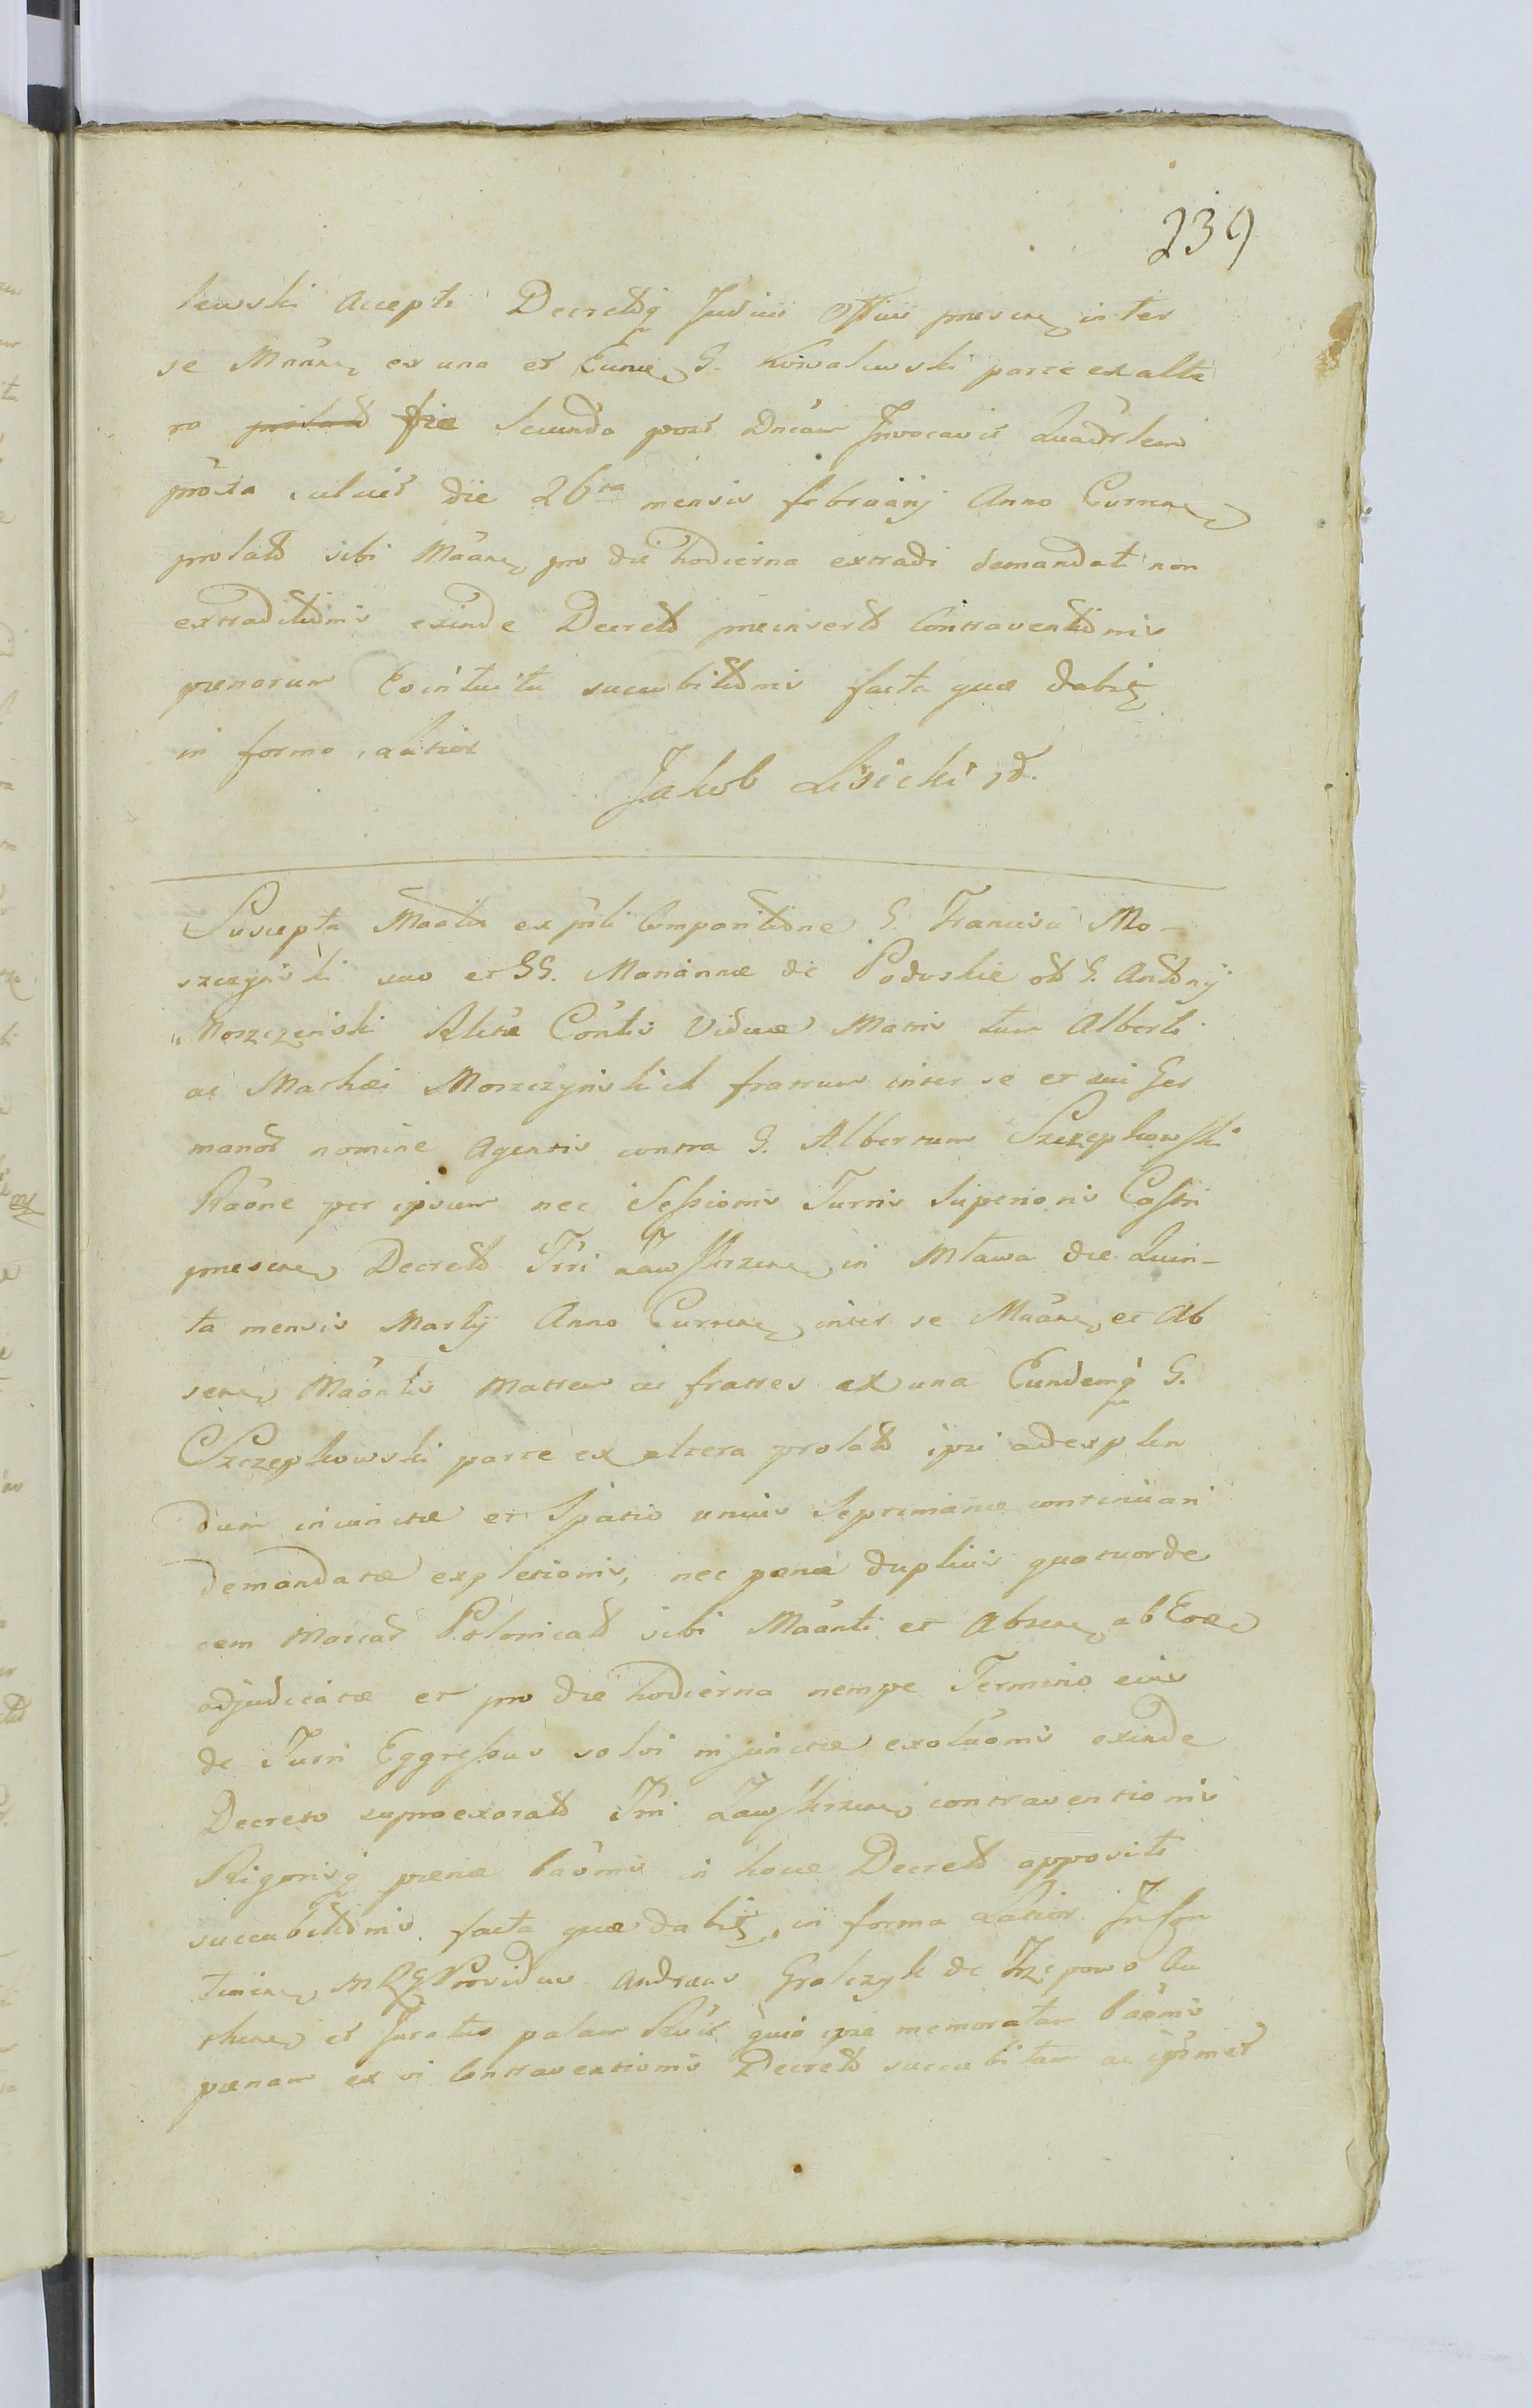 239
lewski Accepti Decretiq Judicii Officii presen inter
se Mnan ex una et Eunde G. Kowalewski parte ex alte
ra fria Secunda post Dncam Invocavit Quadrlem
proxta die 26ta mensis februarij Anno Curren
prolati sibi Maan pro die hodierna extradi demandat non
extraditionis exinde Decreti preinserti Contraventionis
penarum Eointuitu succubitionis facta quæ dabit
in forma Latior
Jakob Lisicki
Suscepta Maata ex pnli Comparitione G. Francisci Mo-
szczynski suo et GG. Mariannæ de Podoskie olim G. Antonij
Moszczenski Relictæ Contis Viduæ Matris tum Alberti
ac Mathæi Moszczynskich fratrum inter se et sui Ger
manor nomine Agentis contra G. Albertum Szczepkowski
Raone per ipsum nec Sessionis Turris Superioris Castri
presen Decreto Trri Zawskrzen in Mława die Quin-
ta mensis Martij Anno Curren inter se Maan et Ab
sen Maontis Matrem ac fratres ex una Eundemq G.
Szczepkowski parte ex altera prolato ipsi ad explen
dum injunctæ et Spatio unius Septimanæ continuari
demandatæ expletionis, nec penæ duplicis quatuorde
cem Marcar Polonicali sibi Maanti et Absen ab Eode
adjudicatæ et pro die hodierna nempe Termino eius
de Turri Eggressus solvi injunctæ exolutionis exinde
Decreto supra exarato Trri Zawskrzen contraventionis
Rigorisq penæ baomis in hocce Decreto appositi
succubitionis facta quæ dabit, in forma Latior. In Con
tinen Providus Andreas Grolczyk de Trzpowo Au
then et Juratus palam Rvit quia ipse memoratam baomis
penam ex vi Contraventionis Decreti succubitam ac